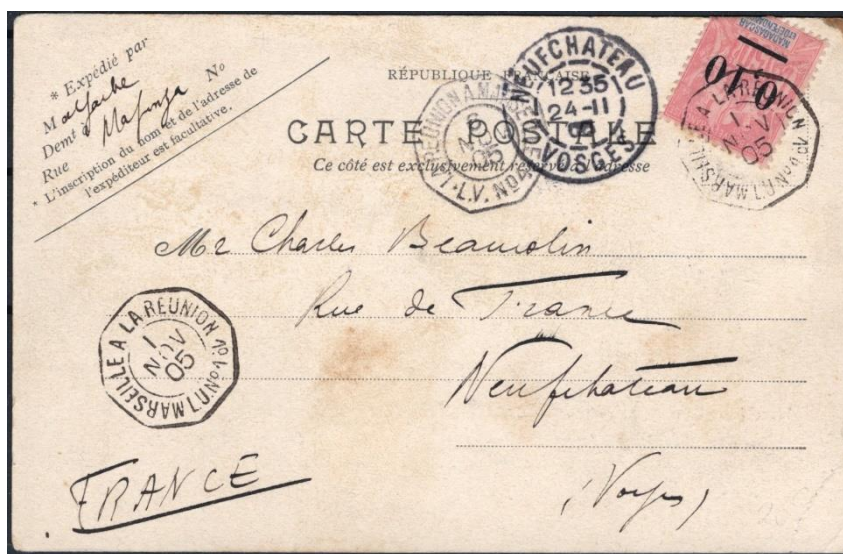 * Expédié par
M
Demt à Majunga No
Rue
* L'inscription du nom et de l'adresse de
l'expéditeur est facultative.
RÉPUBLIQUE FRANÇAISE
CARTE POSTALE
Ce côté est exclusivement réservé à l'adresse
NEUFCHATEAU
12 35
24-11
05
VOSGES
LA REUNION A MARSEILLE
NOV
05
L.V. No
MADAGASCAR
ET DÉPENDANCES
0,10
MARSEILLE A LA RÉUNION 1º
1
NOV
05
L.U. No 1
Mr Charles Beaucolin
Rue de France
Neufchateau
(Vosges)
MARSEILLE A LA RÉUNION 1º
1
NOV
05
L.U. No 1
FRANCE